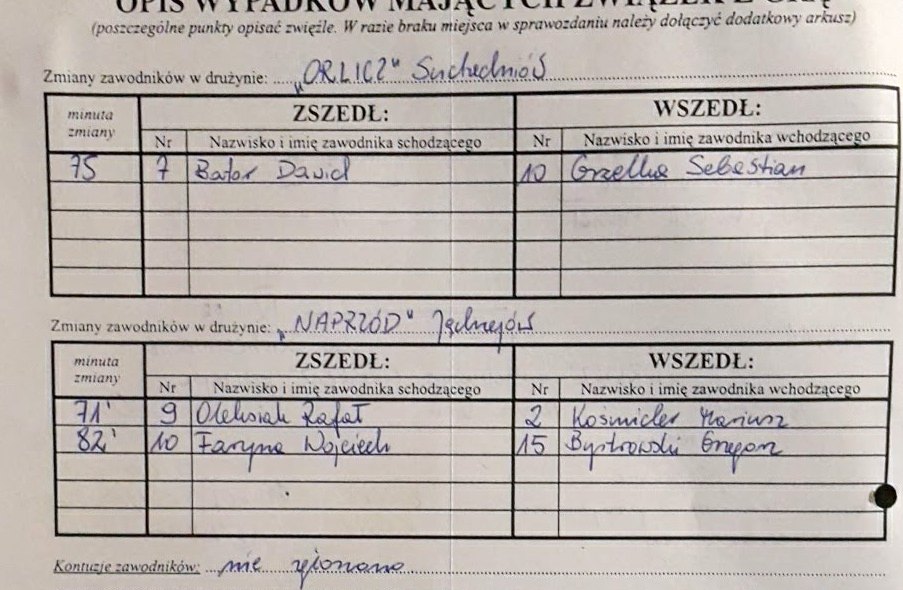 OPIS WYPADKÓW MAJĄCYCH ZWIĄZEK Z GRĄ
(poszczególne punkty opisać zwięźle. W razie braku miejsca w sprawozdaniu należy dołączyć dodatkowy arkusz)
Zmiany zawodników w drużynie: „ORLICZ" Suchedniów
minuta zmiany ZSZEDŁ: WSZEDŁ:
Nr Nazwisko i imię zawodnika schodzącego Nr Nazwisko i imię zawodnika wchodzącego
75 7 Bator Dawid 10 Grzelka Sebastian
Zmiany zawodników w drużynie: „NAPRZÓD" Jędrzejów
minuta zmiany ZSZEDŁ: WSZEDŁ:
Nr Nazwisko i imię zawodnika schodzącego Nr Nazwisko i imię zawodnika wchodzącego
71' 9 Oleksiak Rafał 2 Kośmider Mariusz
82' 10 Faryna Wojciech 15 Bystrowski Grzegorz
Kontuzje zawodników: nie zgłoszono